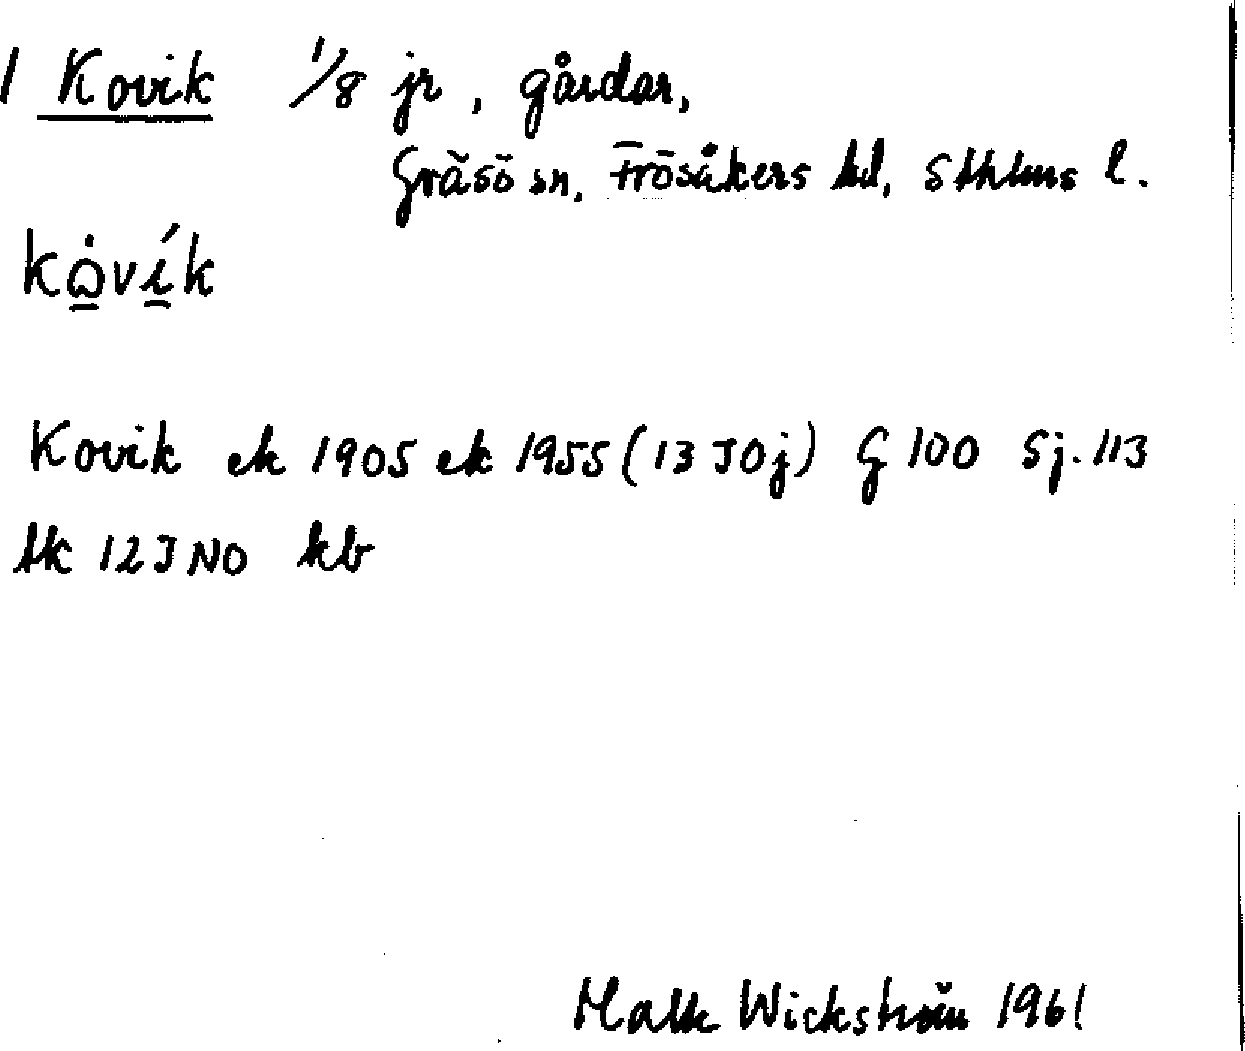 1 Kovik 1/8 jr, gårdar,
Gräsö sn, Frösåkers hd, Sthlms l.
Kovik ek 1905 ek 1955 (13 I 0j) G 100 Sj. 113
tk 12 I NO kb
Wickström 1961